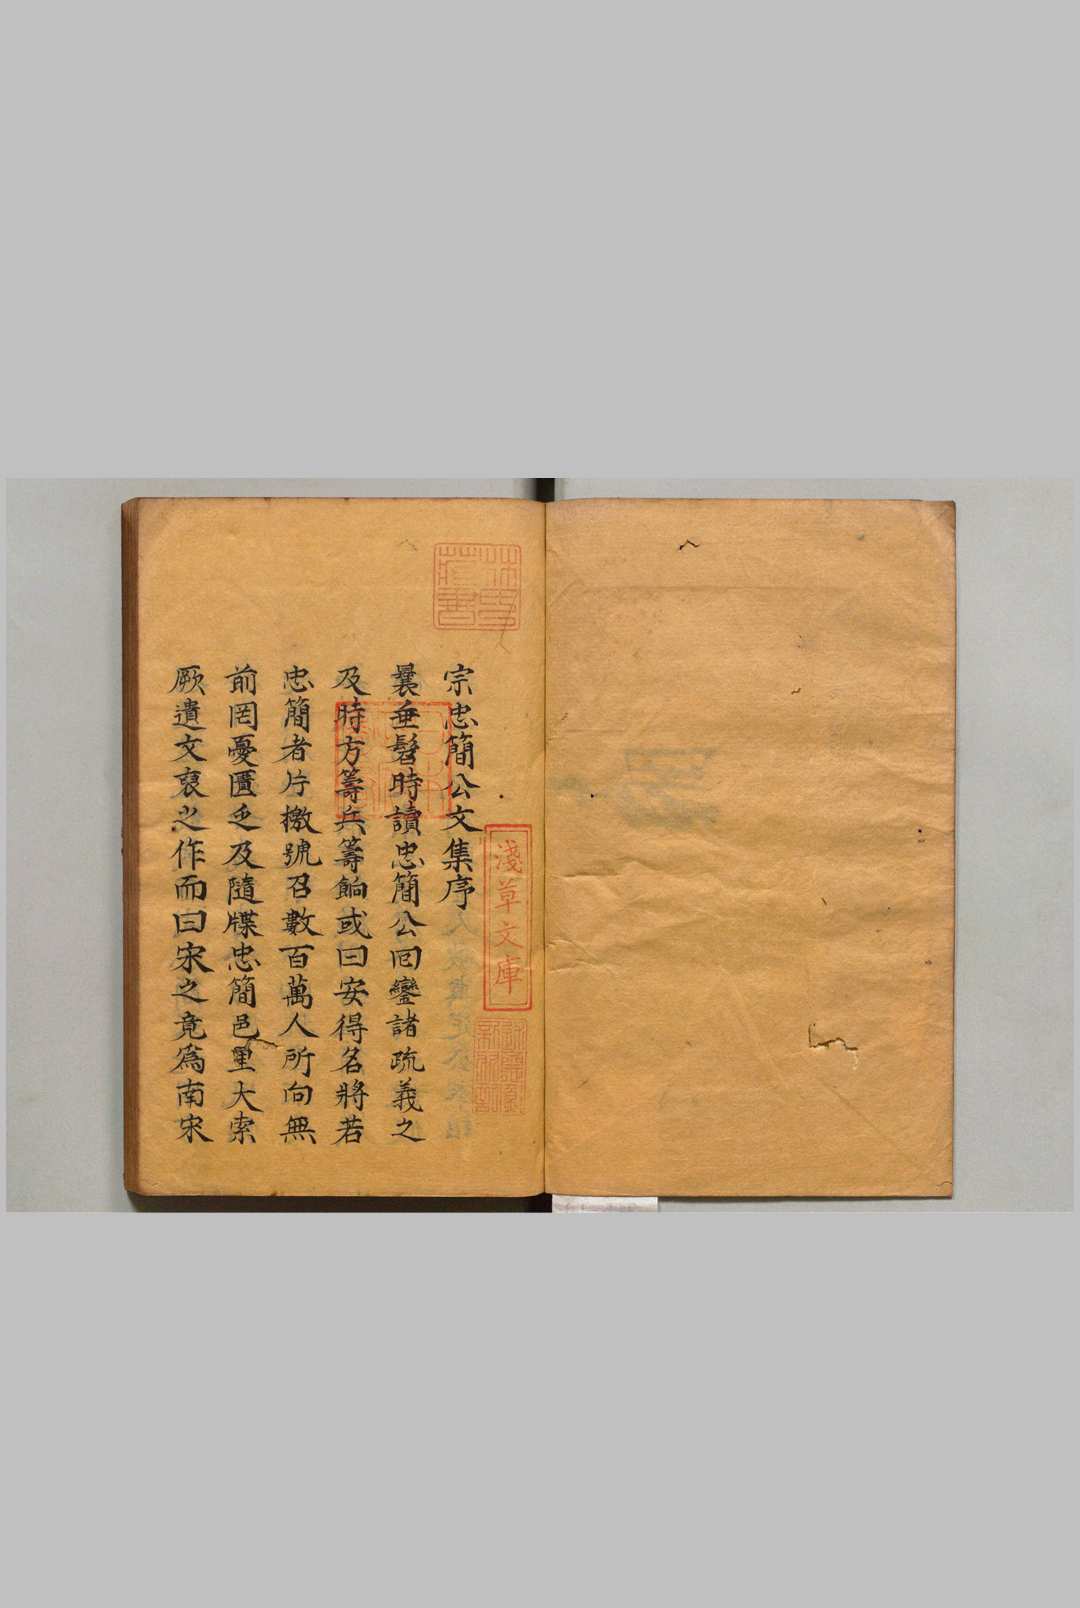 宗忠簡公文集序
曩垂髫時讀忠簡公回鑾諸疏義之
及時方籌兵籌餉或曰安得名將若
忠簡者片檄號召數百萬人所向無
前罔憂匱乏及隨牒忠簡邑里大索
厥遺文裒之作而曰宋之竟爲南宋
淺草文庫